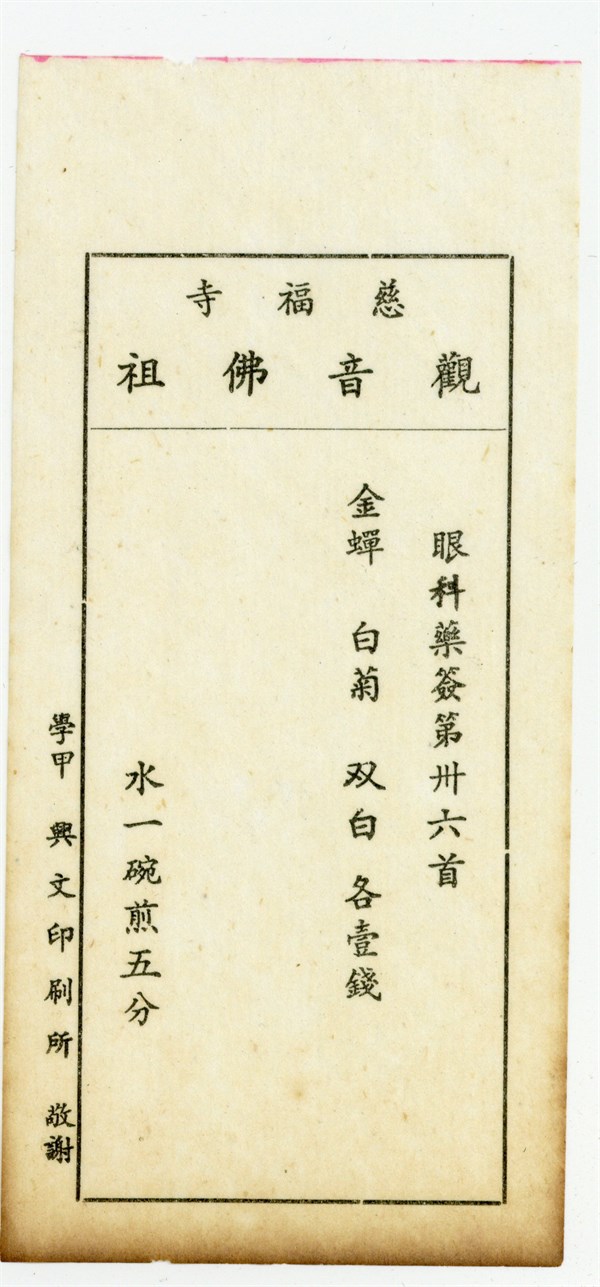 慈福寺
觀音佛祖
眼科藥簽第卅六首
金蟬 白菊 双白 各壹錢
水一碗煎五分
學甲 興文印刷所 敬謝